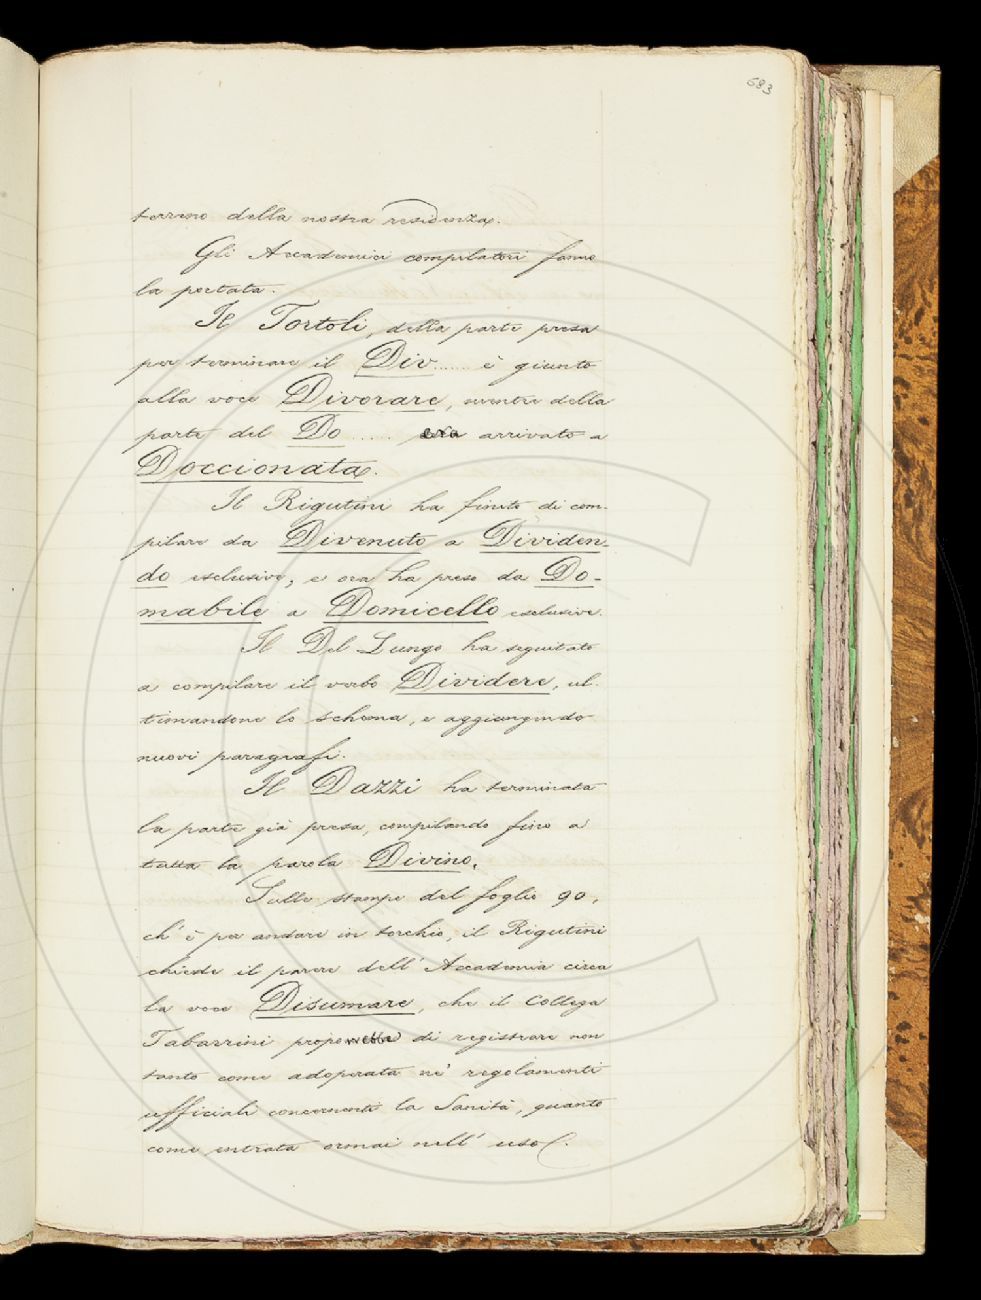 683
terreno della nostra residenza.
Gli Accademici compilatori fanno
la portata.
Il Tortoli, della parte presa
per terminare il Div...... è giunto
alla voce Divorare, mentre della
parte del Do..... era arrivato a
Doccionata.
Il Rigutini ha finito di com-
pilare da Divenuto a Dividen-
do esclusive, e ora ha preso da Do-
mabile a Domicello esclusive.
Il Del Lungo ha seguitato
a compilare il verbo Dividere, ul-
timandone lo schema, e aggiungendo
nuovi paragrafi.
Il Dazzi ha terminata
la parte già presa, compilando fino a
tutta la parola Divino.
Sulle stampe del foglio 90,
ch'è per andare in torchio, il Rigutini
chiede il parere dell'Accademia circa
la voce Disumare, che il Collega
Tabarrini propone di registrare non
tanto come adoperata ne' regolamenti
ufficiali concernenti la Sanità, quanto
come entrata ormai nell'uso.